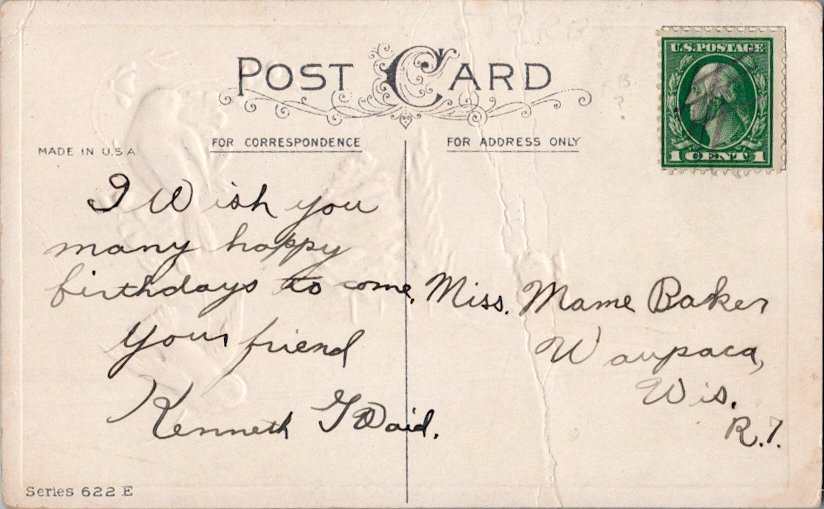 POST CARD
U.S. POSTAGE
1 CENT 1
MADE IN U.S.A
FOR CORRESPONDENCE
FOR ADDRESS ONLY
I Wish you
many happy
birthdays to come,
Your friend
Kenneth
Miss. Mame Baker
Waupaca,
Wis.
R.7.
Series 622 E